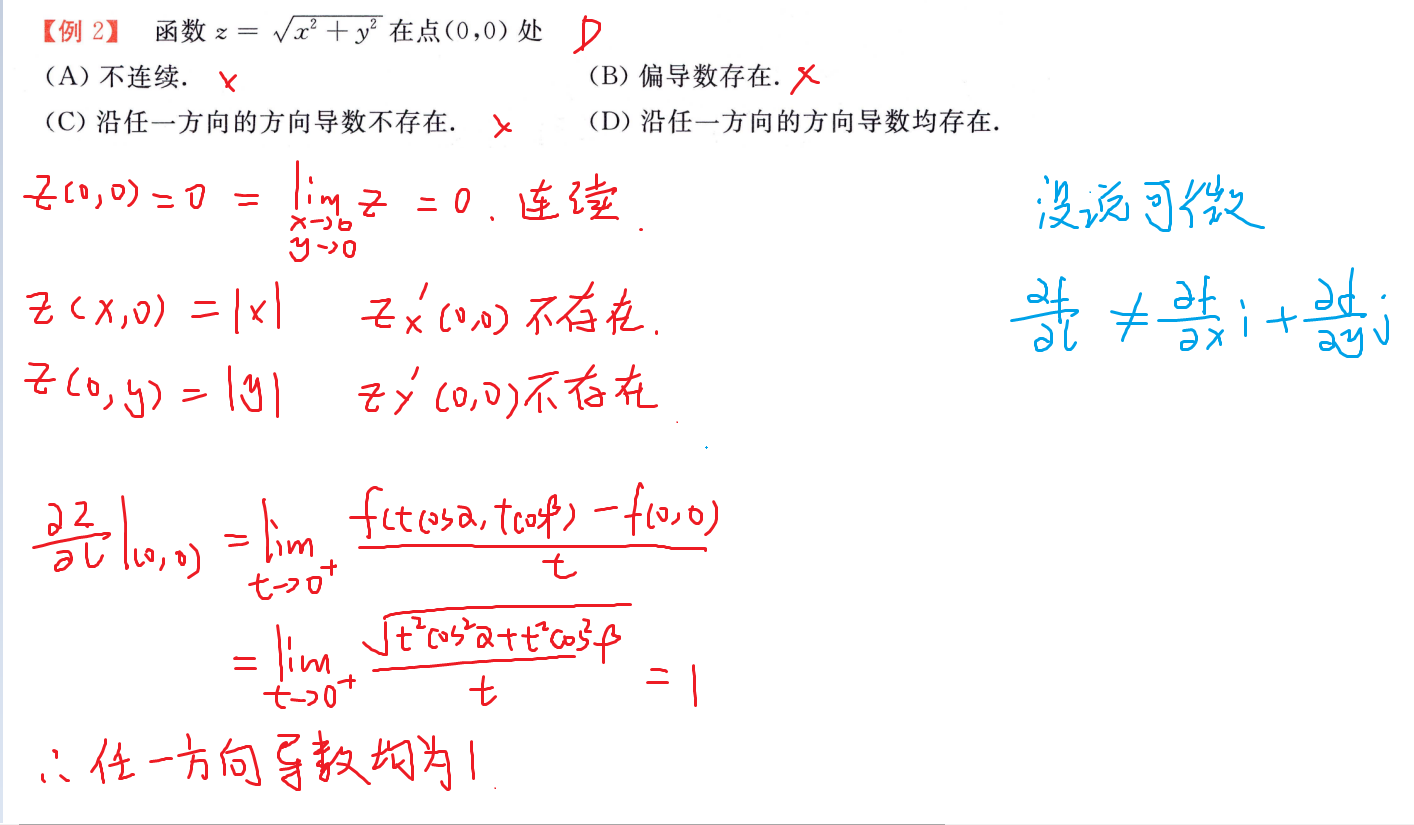 【例 2】 函数 z = √(x² + y²) 在点(0,0) 处 D
(A) 不连续. ×
(B) 偏导数存在. ×
(C) 沿任一方向的方向导数不存在. ×
(D) 沿任一方向的方向导数均存在.
z(0,0) = 0 = lim_{x→0, y→0} z = 0. 连续.
z(x,0) = |x| zx′(0,0) 不存在.
z(0,y) = |y| zy′(0,0) 不存在
∂z/∂l |(0,0) = lim_{t→0⁺} (f(tcosα, tcosβ) − f(0,0))/t
= lim_{t→0⁺} √(t²cos²α + t²cos²β)/t = 1
∴ 任一方向导数均为1
没说可微
∂f/∂l ≠ ∂f/∂x i + ∂f/∂y j